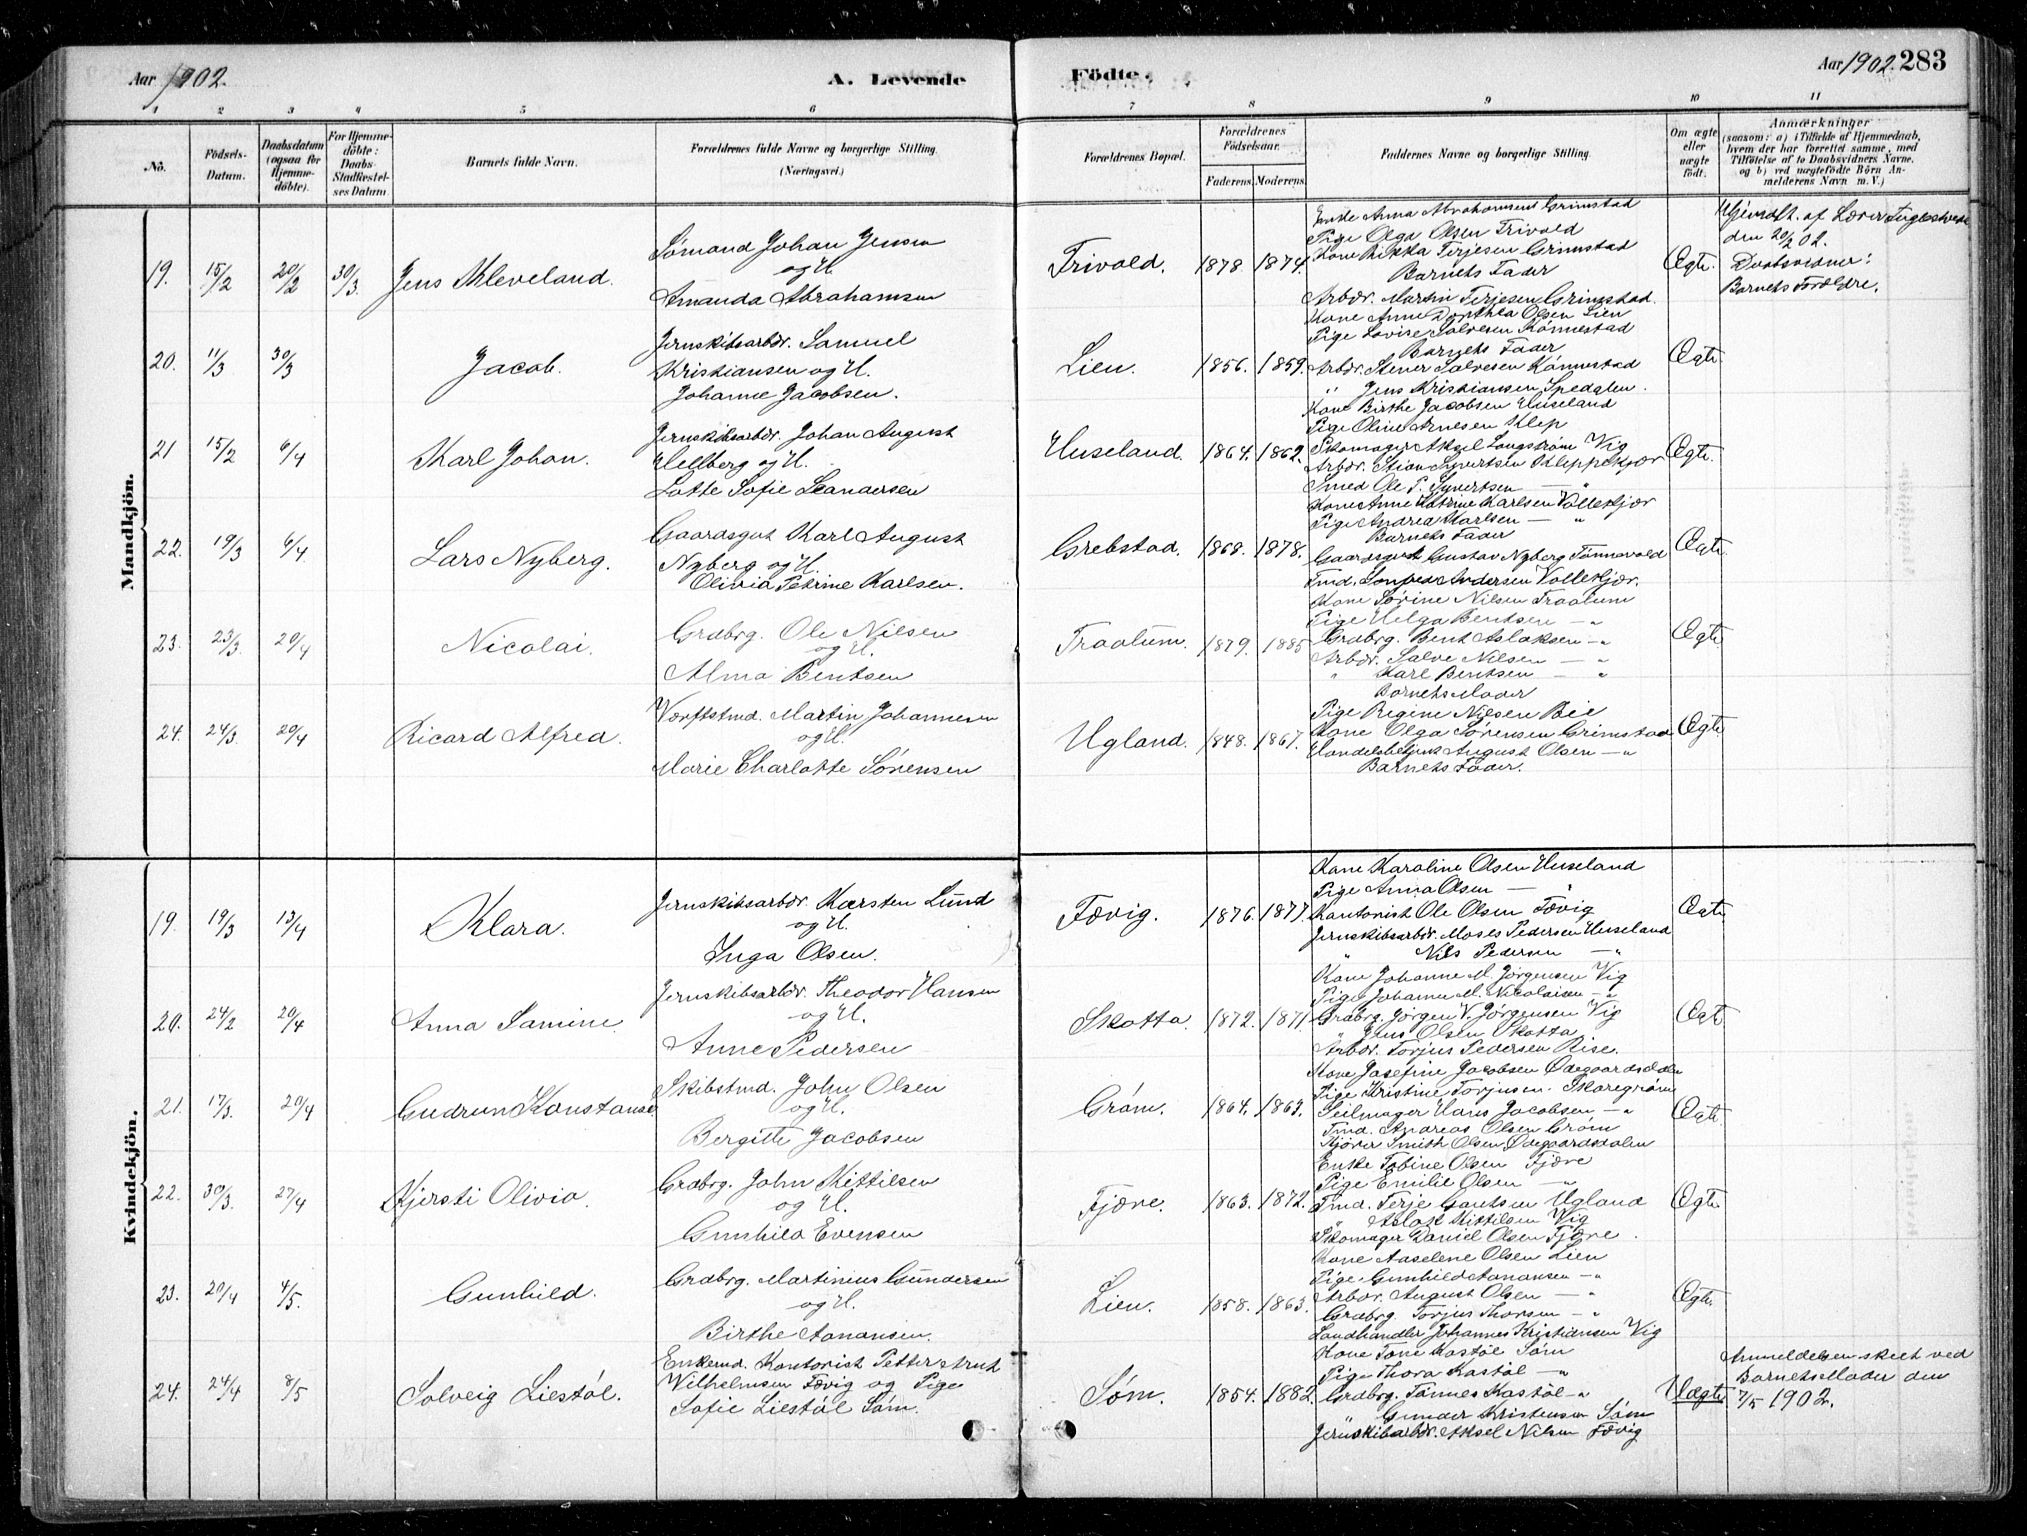 Aar 1902.
A. Levende
Födte.
Aar 1902. 283
1 2 3 4 5 6 7 8 9 10 11
No.
Födsels-Datum.
Daabsdatum (ogsaa for Hjemmedöbte).
For Hjemmedöbte: Daabs-Stadfæstelses Datum.
Barnets fulde Navn.
Forældrenes fulde Navne og borgerlige Stilling. (Næringsvei.)
Forældrenes Bopæl.
Forældrenes Födselsaar.
Faderens. Moderens.
Faddernes Navne og borgerlige Stilling.
Om ægte eller uægte födt.
Anmærkninger
(saasom: a) i Tilfælde af Hjemmedaab, hvem der har forrettet samme, med Tilföielse af to Daabsvidners Navne, og b) ved uægtefödte Börn Anmelderens Navn m. V.)
Mandkjön.
19. 15/2 20/2 30/3 Jens Kleveland.
Sømand Johan Jensen
og H.
Amanda Abrahamsen
Frivold. 1878 1874.
Enke Anna Abrahamsen Grimstad
Pige Olga Olsen Frivold
Kone Rikka Terjesen Grimstad
Barnets Fader
Arbdr. Martin Terjesen Grimstad.
Ægte.
Hjemdt. af Lærer Fuglestvedt
den 20/2 02.
Daabsvidner:
Barnets Forældre.
20. 11/3 30/3 Jacob.
Jernskibsarbdr. Samuel
Kristiansen og H.
Johanne Jacobsen.
Lien. 1856. 1859.
Kone Anne Dorthea Olsen Lien
Pige Lovise Salvesen Rønnestad
Barnets Fader
Arbdr. Stener Salvesen Rønnestad
" Jens Kristiansen Spedalen.
Ægte
21 15/2 6/4 Karl Johan.
Jernskibsarbdr. Johan August
Hellberg og H.
Lotte Sofie Leandersen
Huseland. 1864. 1862.
Kone Birthe Jacobsen Huseland
Pige Oline Arnesen Klep
Skomager Aksel Langstrøm Vig
Arbdr. Stian Syvertsen Kleppekjær
Smed Ole P. Syvertsen — "
Ægte.
22. 19/3 6/4 Lars Nyberg.
Gaardsgut Karl August
Nyberg og H.
Olivia Petrine Karlsen.
Grebstad. 1868. 1878.
Kone Anne Katrine Karlsen Vollekjær
Pige Andrea Karlsen — "
Barnets Fader
Gaardsgut Gustav Nyberg Tønnevold
Tmd. Andersen Vollekjær.
Ægte
23. 23/3. 20/4 Nicolai.
Grdbrg. Ole Nilsen
og H.
Alma Bentsen
Traalum. 1879. 1885
Kone Sørine Nilsen Traalum
Pige Helga Bentsen — "
Grdbrg. Bent Aslaksen — "
Arbdr. Salve Nilsen — "
" Karl Bentsen — "
Ægte
24. 24/3. 20/4 Ricard Alfred.
Værftstmd. Martin Johannesen
og H.
Marie Charlotte Sørensen
Ugland. 1848. 1867.
Barnets Moder
Pige Regine Nilsen Bie
Kone Olga Sørensen Grimstad
Handelsbetjent August Olsen — "
Barnets Fader.
Ægte
Kvindekjön.
19. 19/3 13/4 Klara.
Jernskibsarbdr. Karsten Lund
og H.
Inga Olsen.
Fævig. 1876. 1877.
Kone Karoline Olsen Huseland
Pige Anna Olsen — "
Kontorist Ole Olsen Fævig
Jernskibsarbdr. Moses Pedersen Huseland
" Nils Pedersen — "
Ægte
20. 24/2 20/4 Anna Samine.
Jernskibsarbdr. Theodor Hansen
og H.
Anne Pedersen
Skotta. 1872. 1871.
Kone Johanne M. Jørgensen Vig
Pige Johanne M. Nicolaisen — "
Grdbrg. Jørgen V. Jørgensen Vig
" Jens Olsen Skotta
Arbdr. Torjus Pedersen Bise.
Ægte
21. 17/3. 20/4 Gudrun Konstanse
Skibstmd. John Olsen
og H.
Bergitte Jacobsen
Grøm. 1864. 1863.
Kone Josefine Jacobsen Ødegaardsdalen
Pige Kristine Torjusen Skaregrøm
Seilmager Hans Jacobsen — "
Tmd. Andreas Olsen Grøm
Kjører Smith Olsen Ødegaardsdalen
Ægte
22. 30/3. 27/4 Kjersti Olivia.
Grdbrg. John Kittilsen
og H.
Gunhild Evensen
Fjære. 1863. 1872.
Enke Tobine Olsen Fjære
Pige Emilie Olsen — "
Tmd. Terje Gautsen Ugland
" Aslak Kittilsen Vig
Skomager Daniel Olsen Fjære.
Ægte
23. 20/4 4/5. Gunhild.
Grdbrg. Martinius Gundersen
og H.
Birthe Aanansen.
Lien. 1858. 1863.
Kone Aaselene Olsen Lien
Pige Gunhild Aanansen — "
Arbdr. August Olsen — "
Grdbrg. Torjus Thorsen — "
Landhandler Johannes Kristiansen Vig
Ægte.
24. 24/4 8/5 Solveig Liestøl.
Enkemd. Kontorist Petter Arnt
Wilhelmsen Fævig og Pige
Sofie Liestøl Søm.
Søm. 1854. 1882.
Kone Tone Kastøl Søm
Pige Thora Kastøl — "
Grdbrg. Tønnes Kastøl — "
Gunder Kristensen Søm
Jernskibarbdr. Aksel Nilsen Fævig
Uægte
Anmeldelsen skeet ved
Barnets Moder den
7/5 1902.